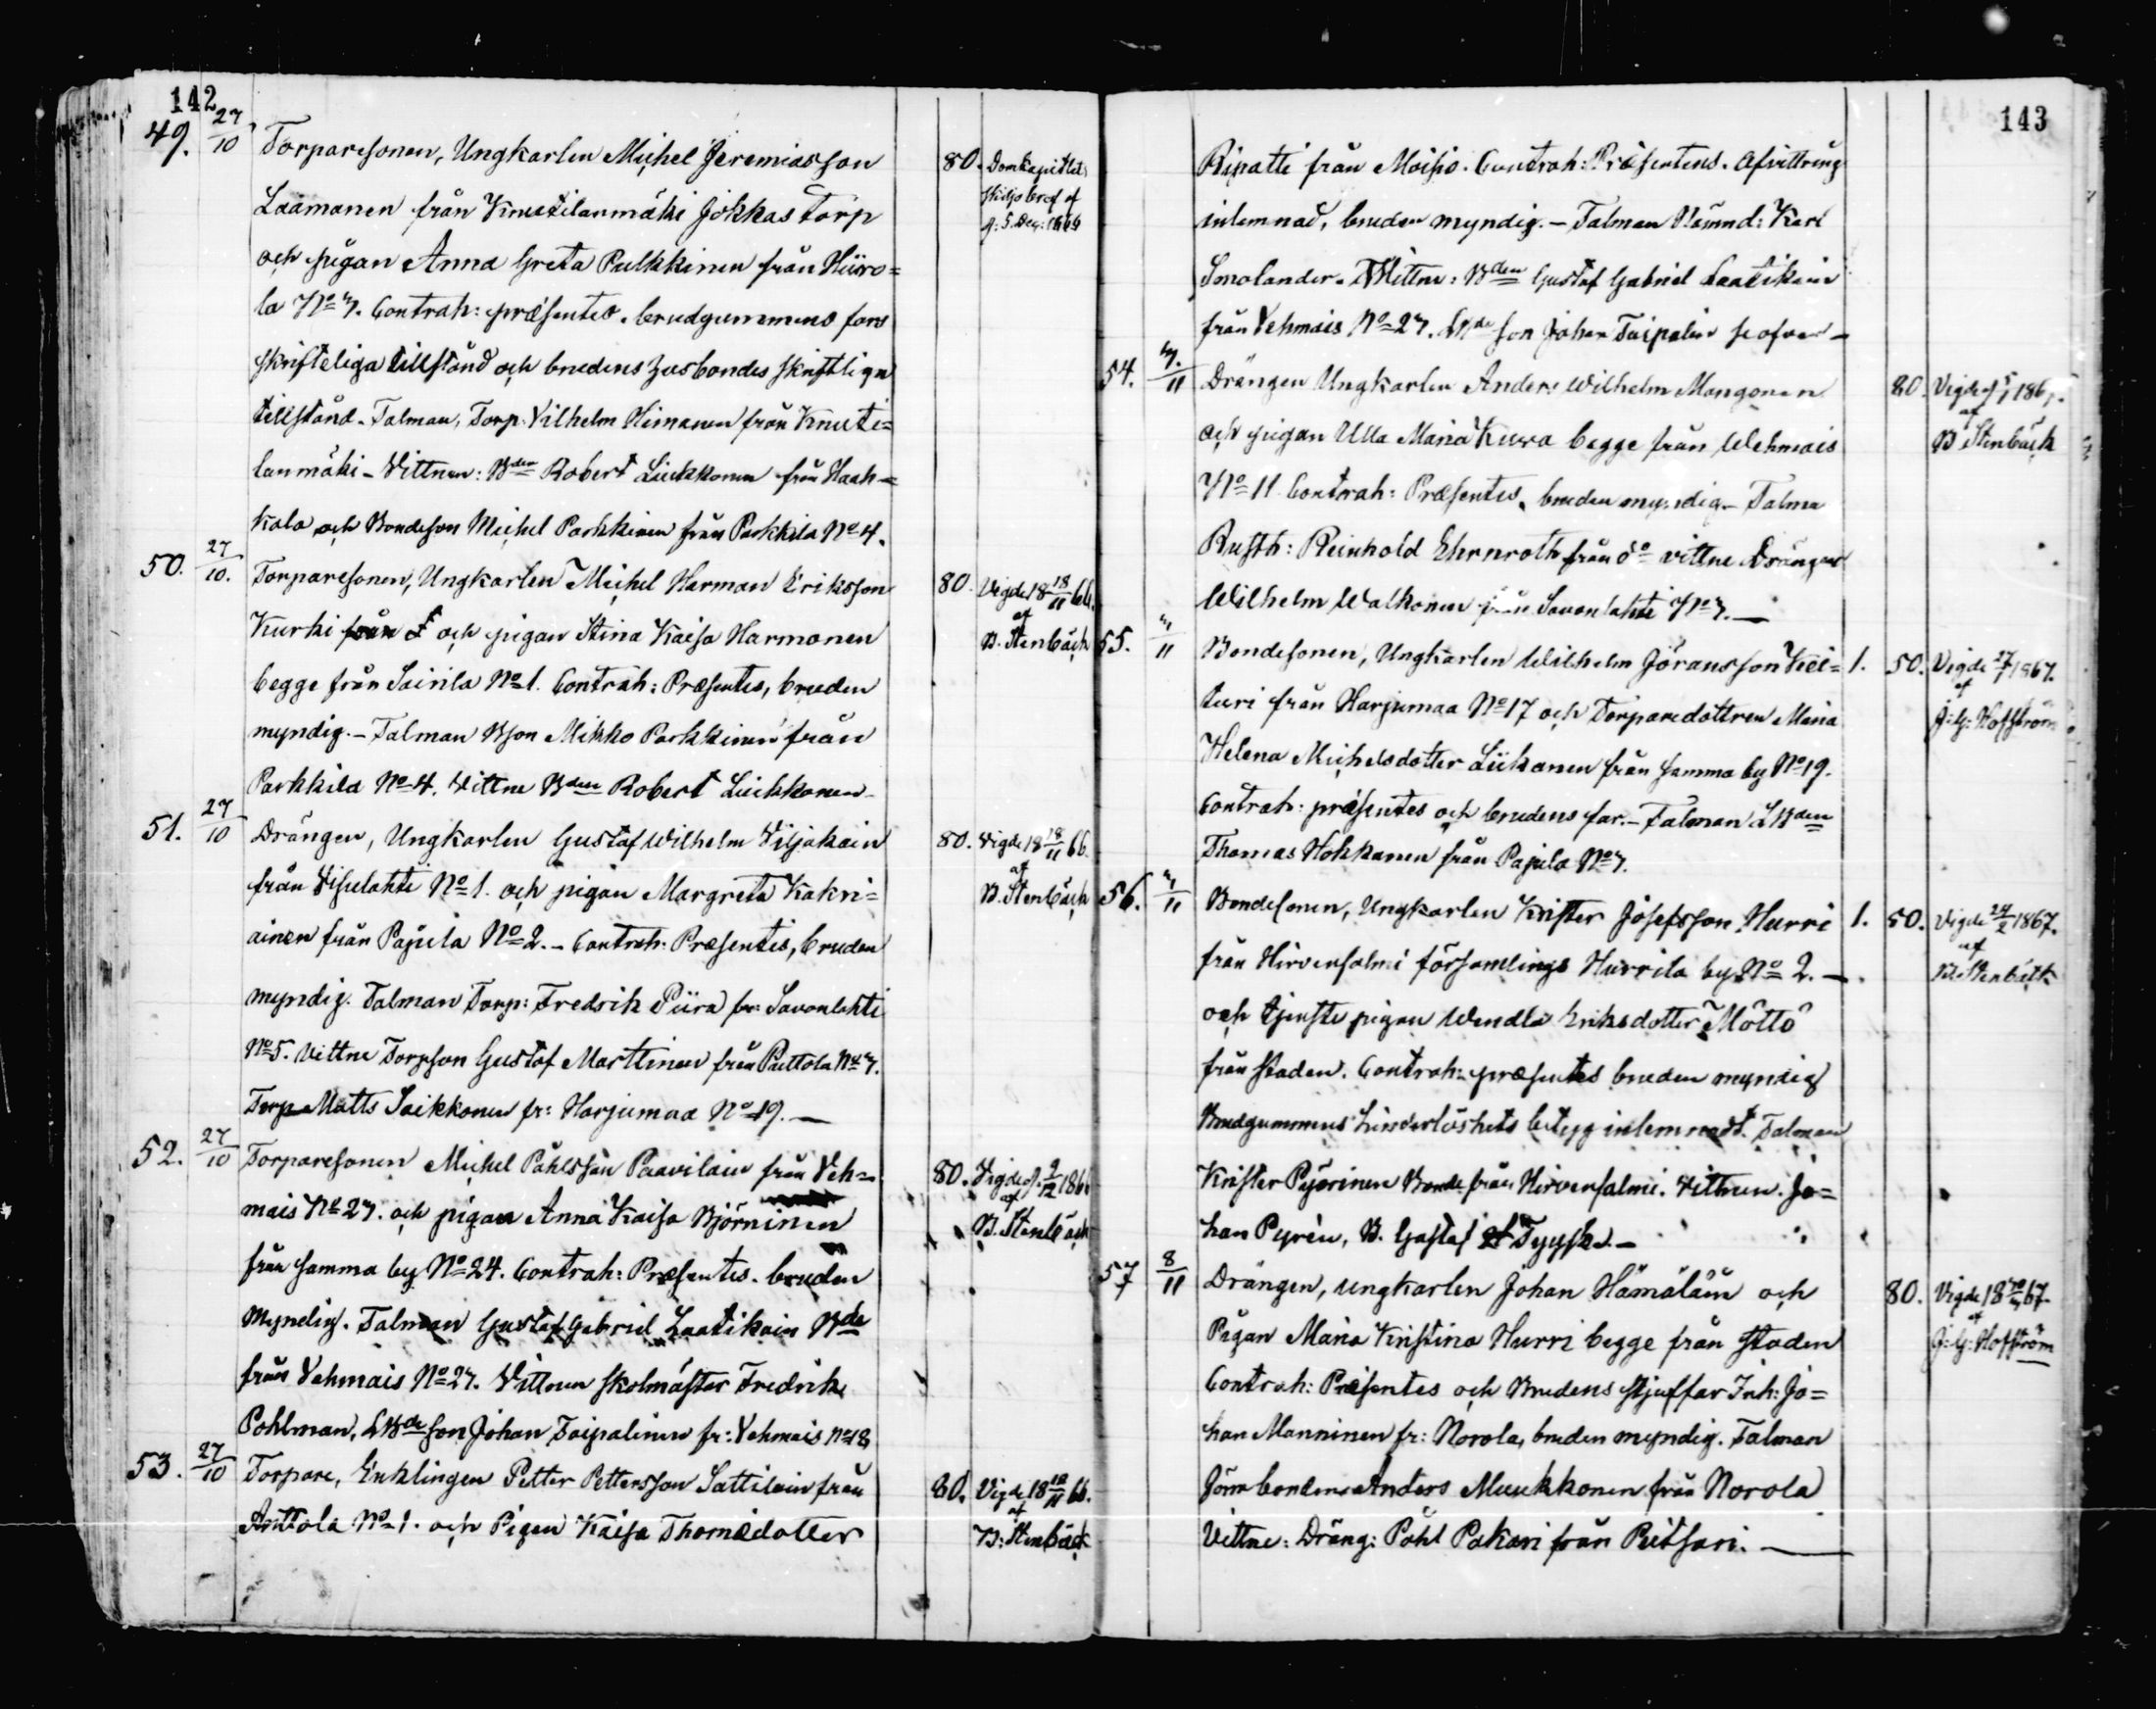 142
49. 27/10 Torparesonen, Ungkarlen Michel Jeremiasson 80. Domkapitlets
Laamanen från Knuutilanmäki Jokkas torp skiljobref af
och pigan Anna Greta Pulkkinen från Hiiro=
la No 7. Contrah: præsentes. brudgummens fars
skrifteliga tillstånd och brudens husbondes skriftliga
tillstånd. Talman, Torp. Vilhelm Himanen från Knuuti=
lanmäki – Vittnen: Bden Robert Liukkonen från Haah=
kala och Bondeson Michel Parkkinen från Parkkila No 4.
50. 27/10. Torparesonen, Ungkarlen Michel Herman Eriksson 80. Vigde 18 18/11 66.
Kurki från och pigan Stina Kaisa Harmonen af B. Stenbäck
begge från Sairila No 1. Contrah: Præsentes, bruden
myndig. – Talman Bson Mikko Parkkinen från
Parkkila No 4. Vittne Bden Robert Liukkonen
51. 27/10 Drängen, Ungkarlen Gustaf Wilhelm Viljakain 80. Vigde 18 18/11 66.
från Visulahti No 1. och pigan Margreta Kakri= af B. Stenbäck
ainen från Pajula No 2. – Contrah: Præsentes, bruden
myndig. Talman Torp: Fredrik Piira fr: Savonlahti
No 5. Vittne Torpson Gustaf Marttinen från No 7.
Torp Matts Saikkonen fr: Harjumaa No 19. —
52. 27/10 Torparesonen Michel Påhlsson Paavilain från Veh= 80. Vigde 9/12 1866
mais No 27. och pigan Anna Kaisa Björninen af B. Stenbäck
från samma by No 24. Contrah: Præsentes. bruden
myndig. Talman Gustaf Gabriel Laatikain Bde
från Vehmais No 27. Vittnen skolmäster Fredrik
Pohlman, LBde son Johan Taipalinen fr: Vehmais No 18
53. 27/10 Torpare, Enklingen Petter Pettersson Sattilain från 80. Vigde 18 18/11 66.
Anttola No 1. och Pigan Kaisa Thomædotter af B: Stenbäck
143
Ripatti från Moisio. Contrah: Præsentes. Afvittring
inlemnad, bruden myndig. – Talman Nämnd: Karl
Smolander. Vittne: Bden Gustaf Gabriel Laatikain
från Vehmais No 27. LBde son Johan Taipalin se ofvan –
54. 7/11 Drängen Ungkarlen Anders Wilhelm Mangonen 80. Vigde
och pigan Ulla Maria Kurva begge från Wehmais af B Stenbäck
No 11 Contrah: Præsentes, bruden myndig. – Talma
Rusth: Reinhold Ehrnroth från do vittne Drängen
Wilhelm Walkonen från Savonlahti No 7. —
55. 7/11 Bondesonen, Ungkarlen Wilhelm Jöransson Kiel= 1. 50. Vigde 27/ 1867.
turi från Harjumaa No 17 och Torparedottren Maria af J: G: Hoffström
Helena Michelsdotter Liikanen från samma by No 19.
Contrah: præsentes och brudens far. – Talman LBden
Thomas Hokkanen från Pajula No 7.
56. 7/11 Bondesonen, Ungkarlen Krister Josefsson Hurri 1. 50. Vigde 24/2 1867.
från Hirvensalmi församlings Hurrila by No 2. – af B. Stenbäck
och tjenste pigan Wendla Eriksdotter Möttö
från staden. Contrah: præsentes bruden myndig
Brudgummens hinderlöshets betyg inlemnadt. Talman
Krister Pyörinen Bonde från Hirvensalmi. Vittnen. Jo=
han Pyrèn, B. Gustaf Tyyske. –
57 8/11 Drängen, ungkarlen Johan Hämäläin och 80. Vigde
Pigan Maria Kristina Hurri begge från staden af J: G: Hoffström
Contrah: Præsentes och Brudens stjuffar Inh: Jo=
han Manninen fr: Norola, bruden myndig. Talman
bonden Anders Muukkonen från Norola
Vittne: Dräng: Påhl Pakari från Pitsari. —